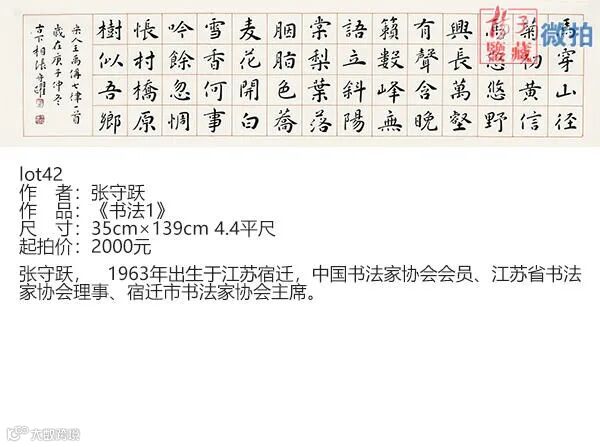 馬穿山徑
菊初黃信
馬悠悠野
興長萬壑
有聲含晚
籟數峰無
語立斜陽
棠梨葉落
胭脂色蕎
麦花開白
雪香何事
吟餘忽惆
悵村橋原
樹似吾鄉
宋人王禹偁七律一首
歲在庚子仲冬
古下相張守躍
揚子
鑒藏
微拍
lot42
作 者：张守跃
作 品：《书法1》
尺 寸：35cm×139cm 4.4平尺
起拍价：2000元
张守跃， 1963年出生于江苏宿迁，中国书法家协会会员、江苏省书法
家协会理事、宿迁市书法家协会主席。
大数跨境